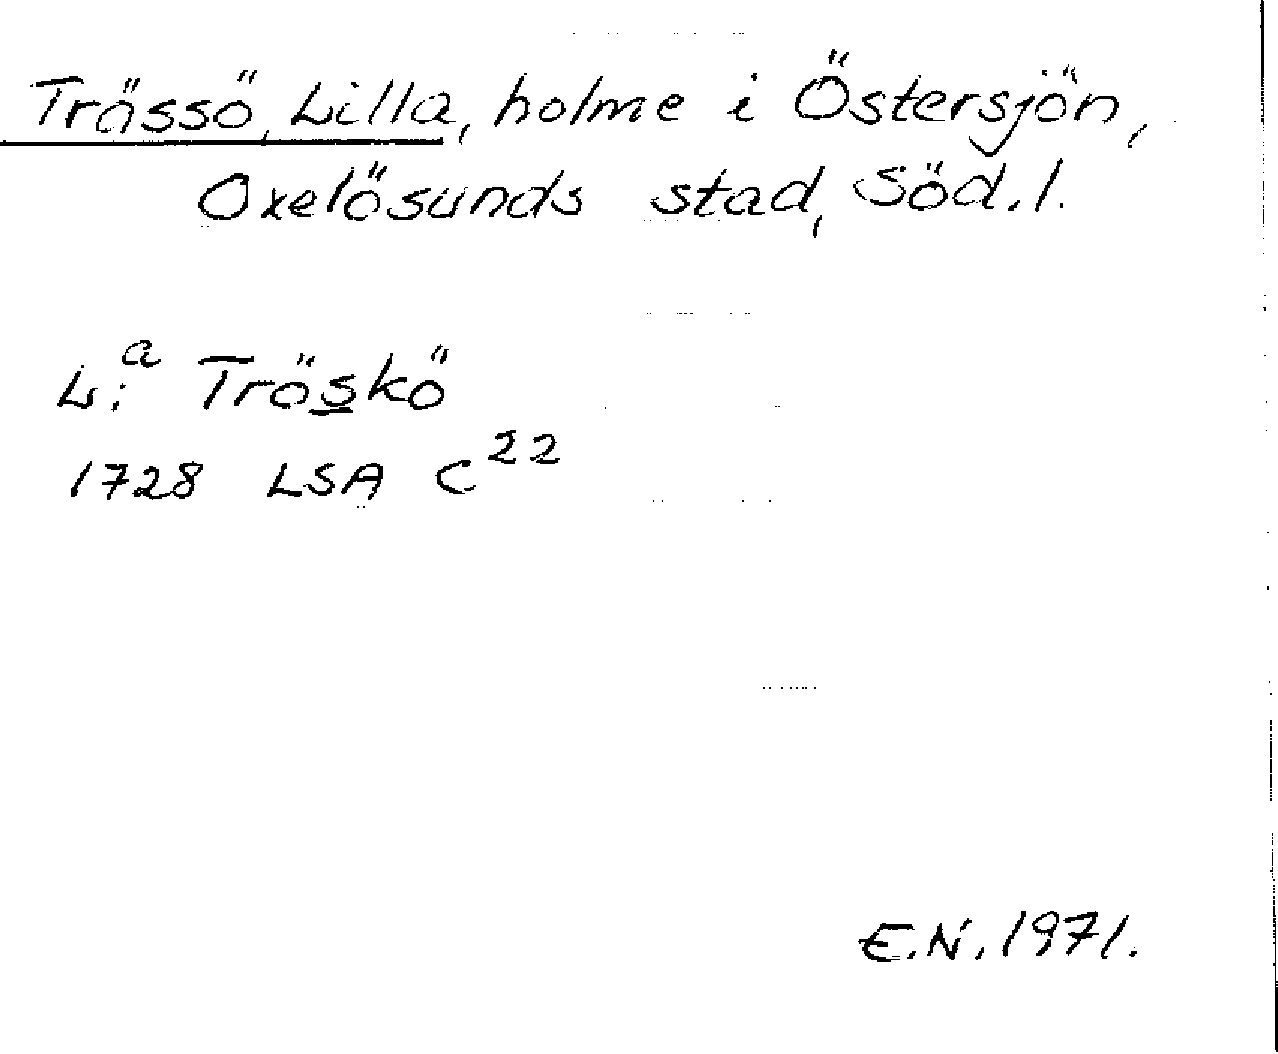 Trässö, Lilla, holme i Östersjön,
Oxelösunds stad, Söd.l.
L:a Tröskö
1728 LSA C22
E.N. 1971.